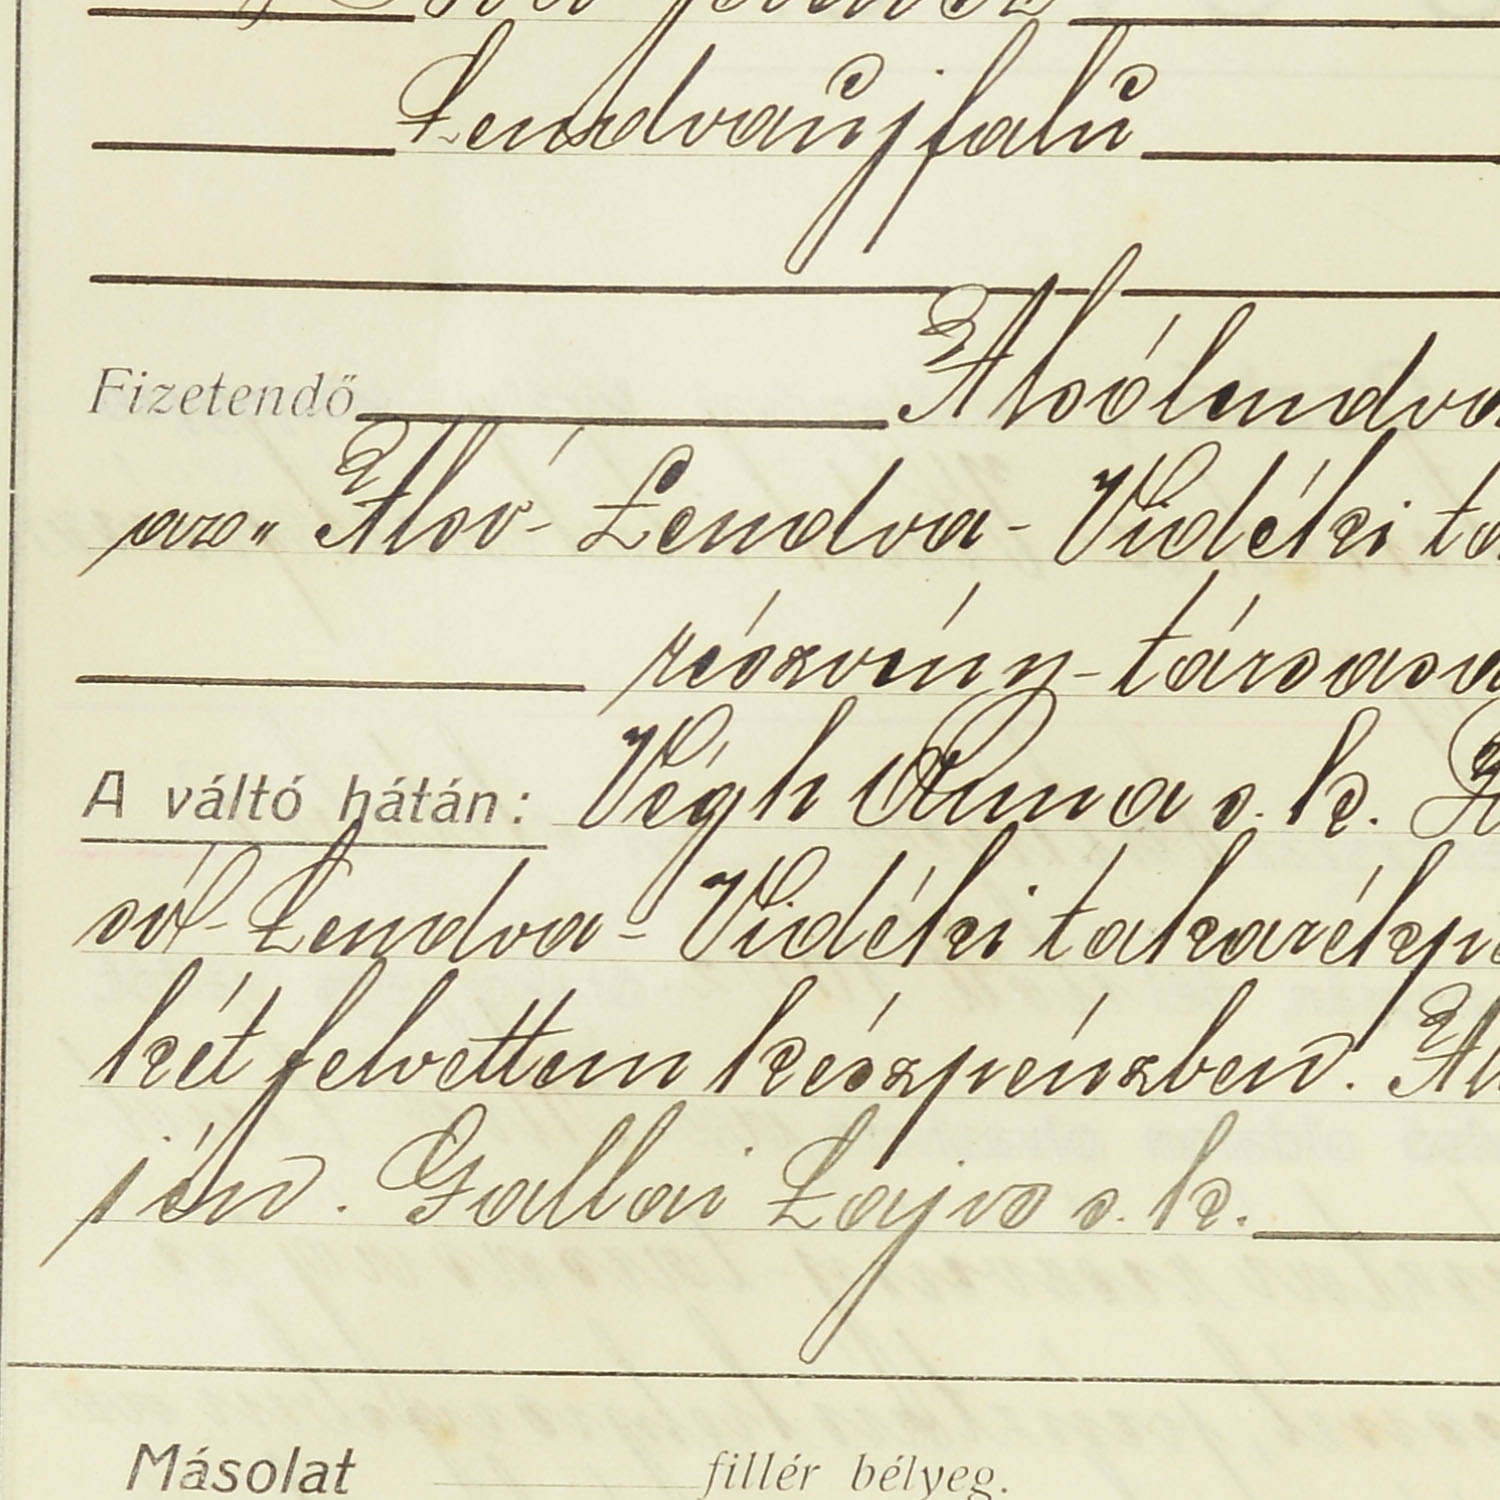 Lendvaújfalu
Fizetendő Alsólendva
az „Alsó-Lendva-Vidéki ta
részvény-társasá
A váltó hátán: Végh Anna s. k.
só-Lendva-Vidéki takarékp
két felvettem készpénzben. Al
jén. Gallai Lajos s. k.
Másolat fillér bélyeg.